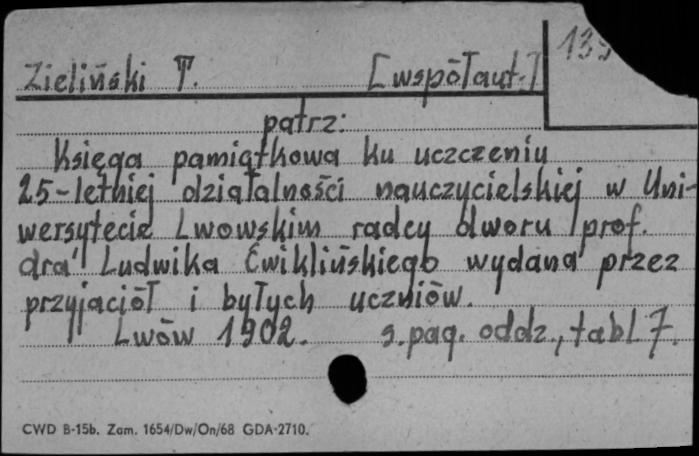 Zieliński T. [współaut.]
patrz:
Księga pamiątkowa ku uczczeniu
25-letniej działalności nauczycielskiej w Uni-
wersytecie Lwowskim radcy dworu prof.
dra Ludwika Ćwiklińskiego wydana przez
przyjaciół i byłych uczniów.
Lwów 1902. s. pag. oddz., tabl. 7.
CWD B-15b. Zam. 1654/Dw/On/68 GDA-2710.